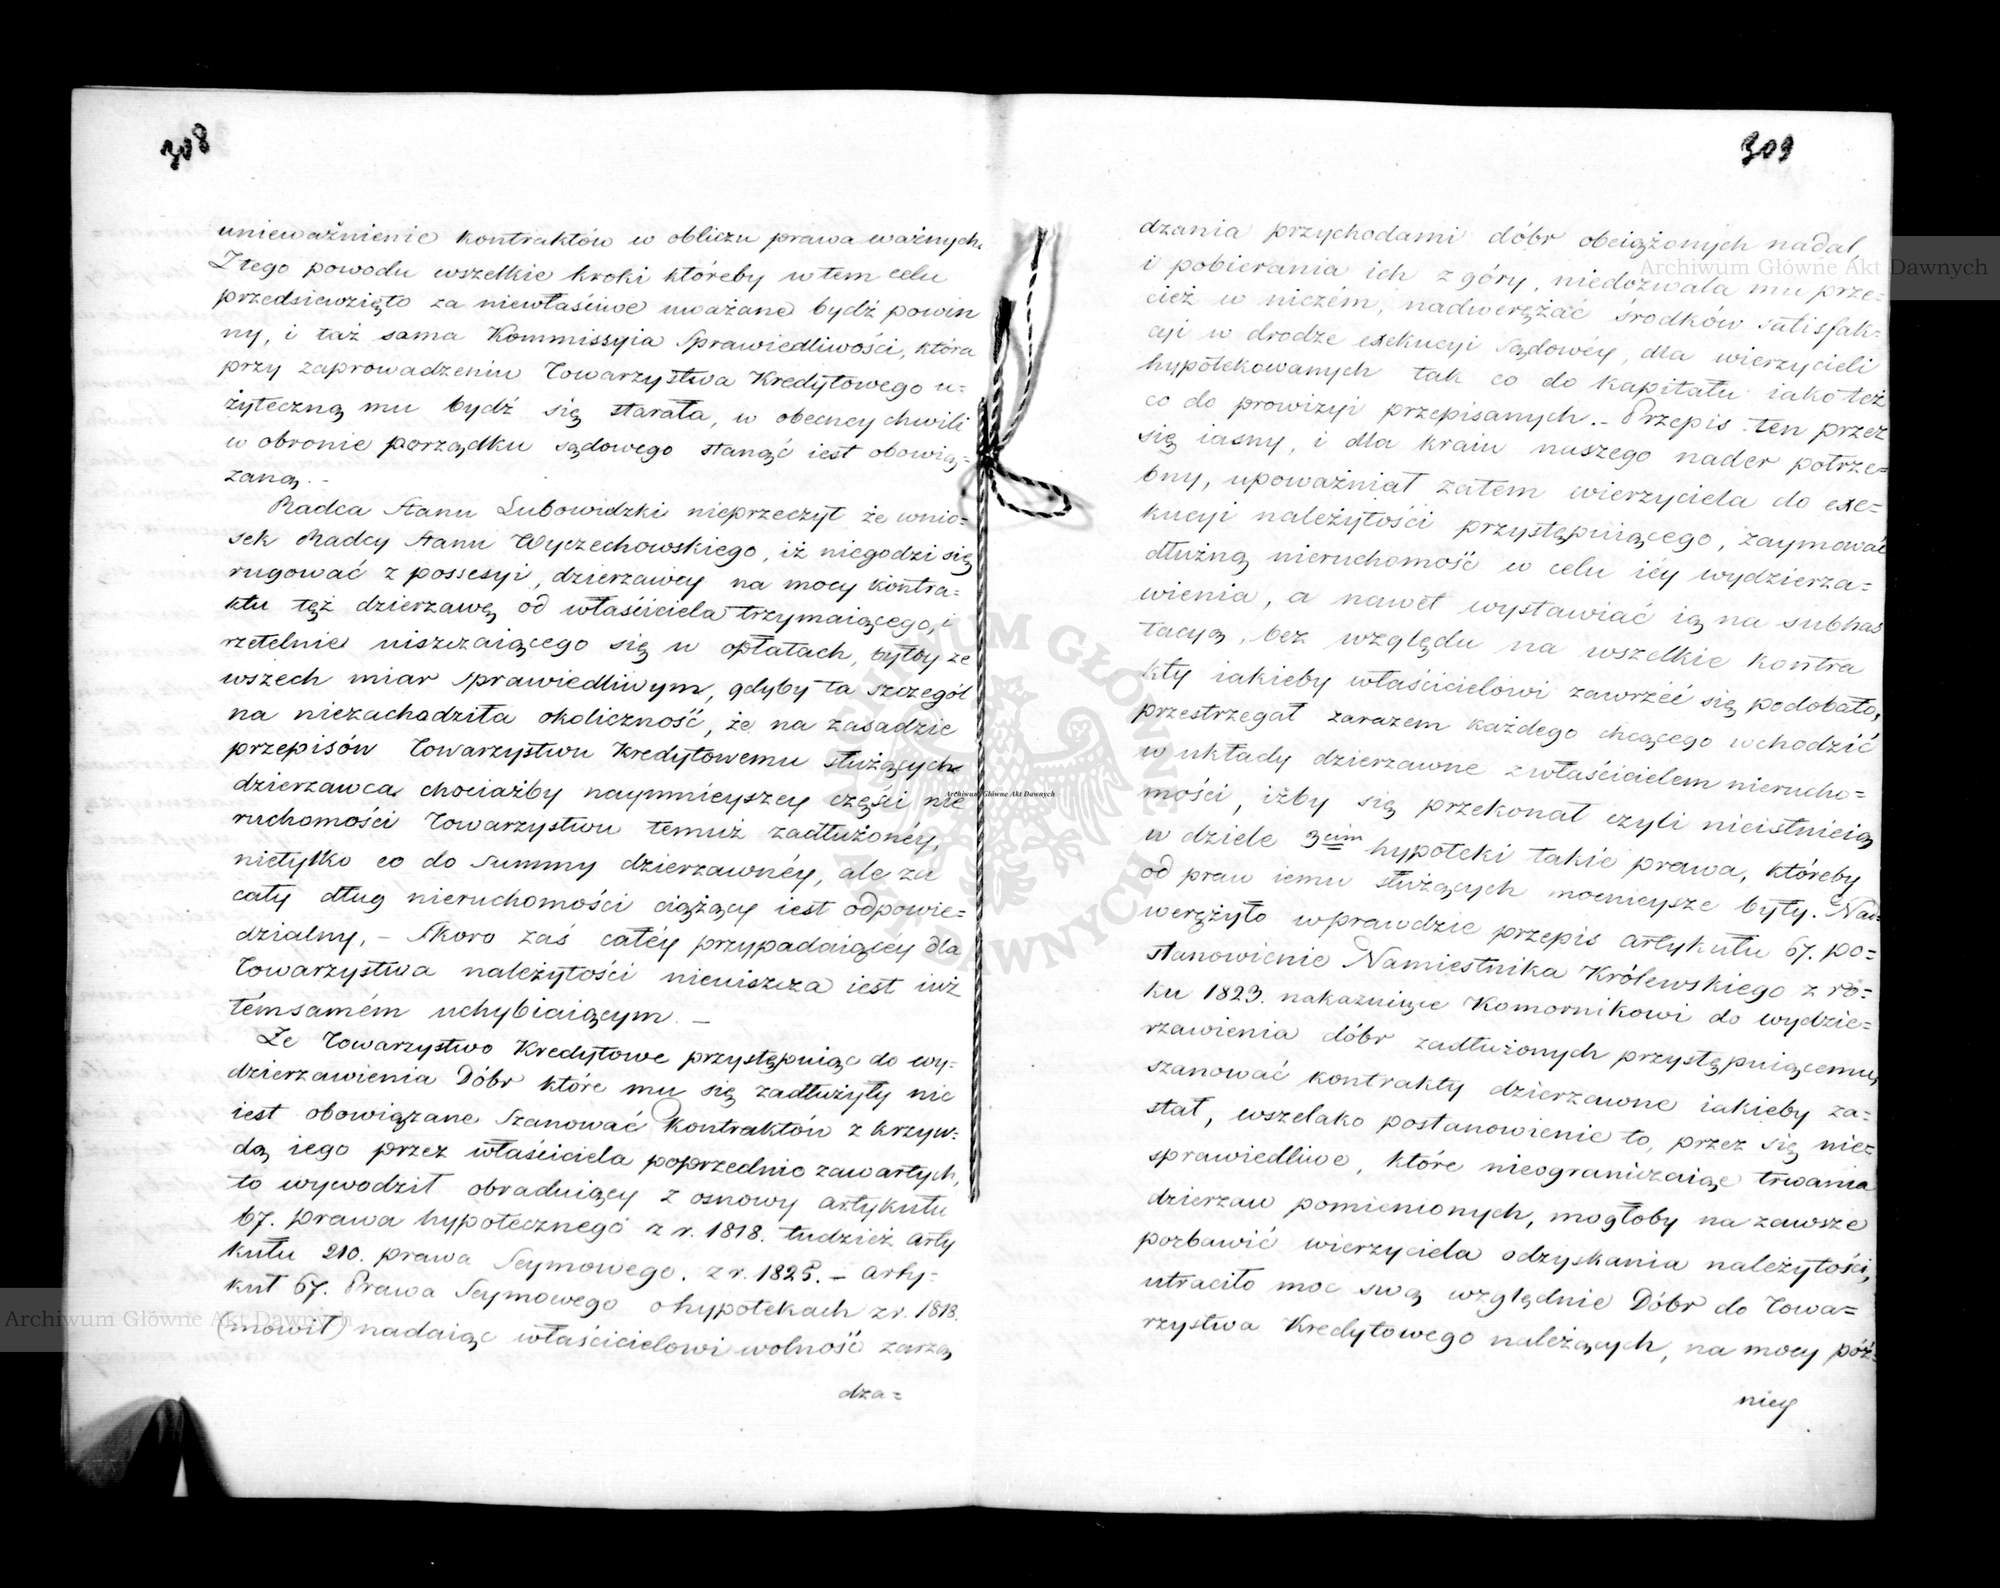 308
unieważnienie kontraktów w obliczu prawa ważnych.
Z tego powodu wszelkie kroki któreby w tem celu
przedsiewzięto za niewłaściwe uważane bydź powin
ny, i taż sama Kommissyia Sprawiedliwości, która
przy zaprowadzeniu Towarzystwa Kredytowego u=
żyteczną mu bydź się starała, w obecney chwili
w obronie porządku sądowego stanąć iest obowią=
zaną. -
Radca Stanu Lubowidzki nieprzeczył że wnio=
sek Radcy Stanu Wyczechowskiego, iż niegodzi się
rugować z possesyi, dzierzawcy na mocy kontra=
ktu tęż dzierzawę od właściciela trzymaiącego, i
rzetelnie uiszczaiącego się w opłatach, byłby ze
wszech miar sprawiedliwym, gdyby ta szczegól
na niezachodziła okoliczność, że na zasadzie
przepisów Towarzystwu Kredytowemu służących
dzierzawca chociażby naymnieyszey części nie
ruchomości Towarzystwu temuż zadłużonéy,
nietylko co do summy dzierzawnéy, ale za
cały dług nieruchomości ciążący iest odpowie=
dzialny, - Skoro zaś całéy przypadaiącéy dla
Towarzystwa należytości nieuiszcza iest iuż
témsamém uchybiaiącym. -
Że Towarzystwo Kredytowe przystępuiąc do wy=
dzierzawienia Dóbr które mu się zadłużyły nie
iest obowiązane szanować Kontraktów z krzyw=
dą iego przez właściciela poprzednio zawartych,
to wywodził obraduiący z osnowy artykułu
67. prawa hypotecznego z r. 1818. tudzież arty
kułu 210. prawa Seymowego. z r. 1825. - arty=
kuł 67. Prawa Seymowego o hypotekach z r. 1818.
(mówił) nadaiąc właścicielowi wolność zarzą
dza=
309
dzania przychodami dóbr obciążonych nadal,
i pobierania ich z góry, niedozwala mu prze=
cież w niczém, nadwerężać środków satisfak=
cyi w drodze exekucyi sądowéy, dla wierzycieli
hypotekowanych tak co do kapitału iako też
co do prowizyi przepisanych. - Przepis ten przez
się iasny, i dla kraiu naszego nader potrze=
bny, upoważniał zatem wierzyciela do exe=
kucyi należytości przystępuiącego, zaymować
dłużną nieruchomość w celu iéy wydzierza=
wienia, a nawet wystawiać ią na subhas
tacyą, bez względu na wszelkie kontra
kty iakieby właścicielowi zawrzéć się podobało,
przestrzegał zarazem każdego chcącego wchodzić
w układy dzierzawne z właścicielem nierucho=
mości, iżby się przekonał czyli nieistnieią
w dziele 3cim hypoteki takie prawa, któreby
od praw iemu służących mocnieysze były. Nad=
werężyło wprawdzie przepis artykułu 67. po=
stanowienie Namiestnika Królewskiego z ro=
ku 1823. nakazuiące Komornikowi do wydzie=
rzawienia dóbr zadłużonych przystępuiącemu,
szanować kontrakty dzierzawne iakieby za=
stał, wszelako postanowienie to, przez się nie=
sprawiedliwe, które nieograniczaiąc trwania
dzierzaw pomienionych, mogłoby na zawsze
pozbawić wierzyciela odzyskania należytości,
utraciło moc swą względnie Dóbr do Towa=
rzystwa Kredytowego należących, na mocy póź=
niey
Archiwum Główne Akt Dawnych
Archiwum Główne Akt Dawnych
Archiwum Główne Akt Dawnych
ARCHIWUM GŁÓWNE AKT DAWNYCH